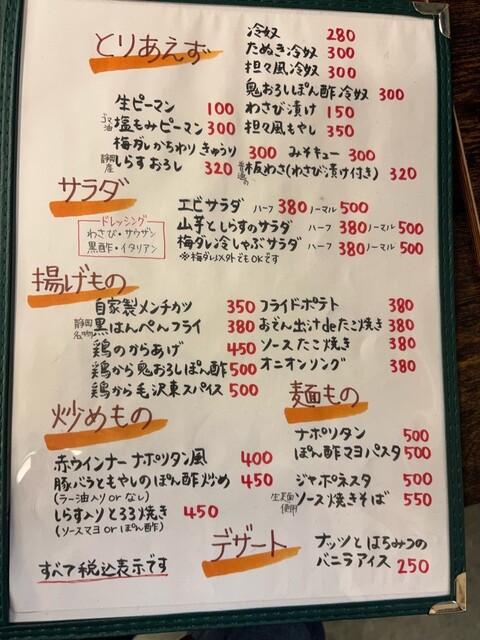 とりあえず
冷奴 280
たぬき冷奴 300
担々風冷奴 300
鬼おろしぽん酢冷奴 300
生ピーマン 100
わさび漬け 150
ゴマ油 塩もみピーマン 300
担々風もやし 350
梅ダレがちわり きゅうり 300
みそキュー 300
静岡産 しらすおろし 320
板わさ(わさび漬け付き) 320
サラダ
ドレッシング
わさび・サウザン
黒酢・イタリアン
エビサラダ ハーフ 380 ノーマル 500
山芋としらすのサラダ ハーフ 380 ノーマル 500
梅ダレ冷しゃぶサラダ ハーフ 380 ノーマル 500
※梅ダレ以外でもOKです
揚げもの
自家製メンチカツ 350
静岡名物 黒はんぺんフライ 380
鶏のからあげ 450
鶏から鬼おろしぽん酢 500
鶏から毛沢東スパイス 500
フライドポテト 380
おでん出汁deたこ焼き 380
ソースたこ焼き 380
オニオンリング 380
炒めもの
赤ウインナー ナポリタン風 400
豚バラともやしのぽん酢炒め 450
(ラー油入り or なし)
しらす入りとろろ焼き 450
(ソースマヨ or ぽん酢)
麺もの
ナポリタン 500
ぽん酢マヨパスタ 500
ジャポネスタ 500
生麺使用 ソース焼きそば 550
デザート
ナッツとはちみつの
バニラアイス 250
すべて税込表示です